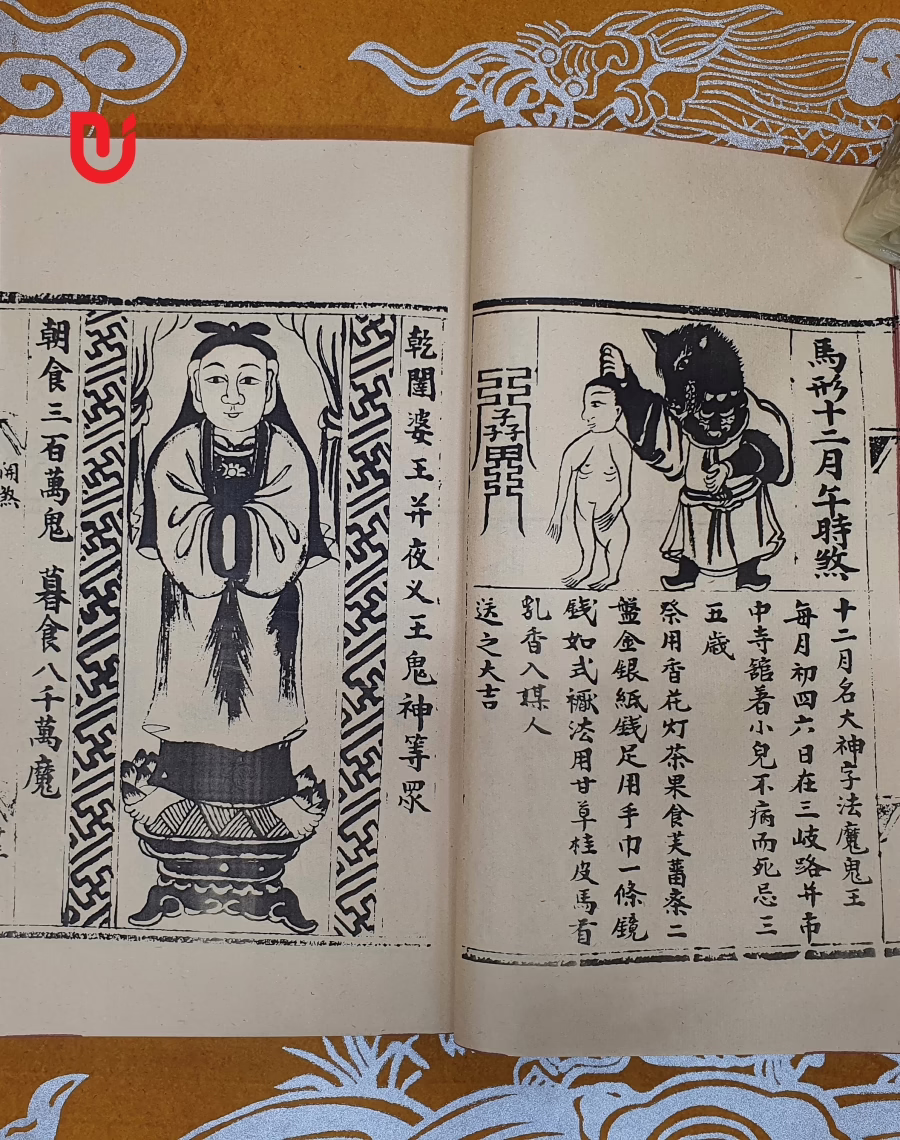 馬形十二月午時煞
十二月名大神字法魔鬼王
每月初四六日在三岐路并市
中寺舘著小兒不病而死忌三
五歲
祭用香花灯茶果食芙蕾齋二
盤金銀紙錢足用手巾一條鏡
錢如式禳法用甘草桂皮馬首
乳香入媒人
送之大吉
乾闥婆王并夜义王鬼神等眾
朝食三百萬鬼 暮食八千萬魔